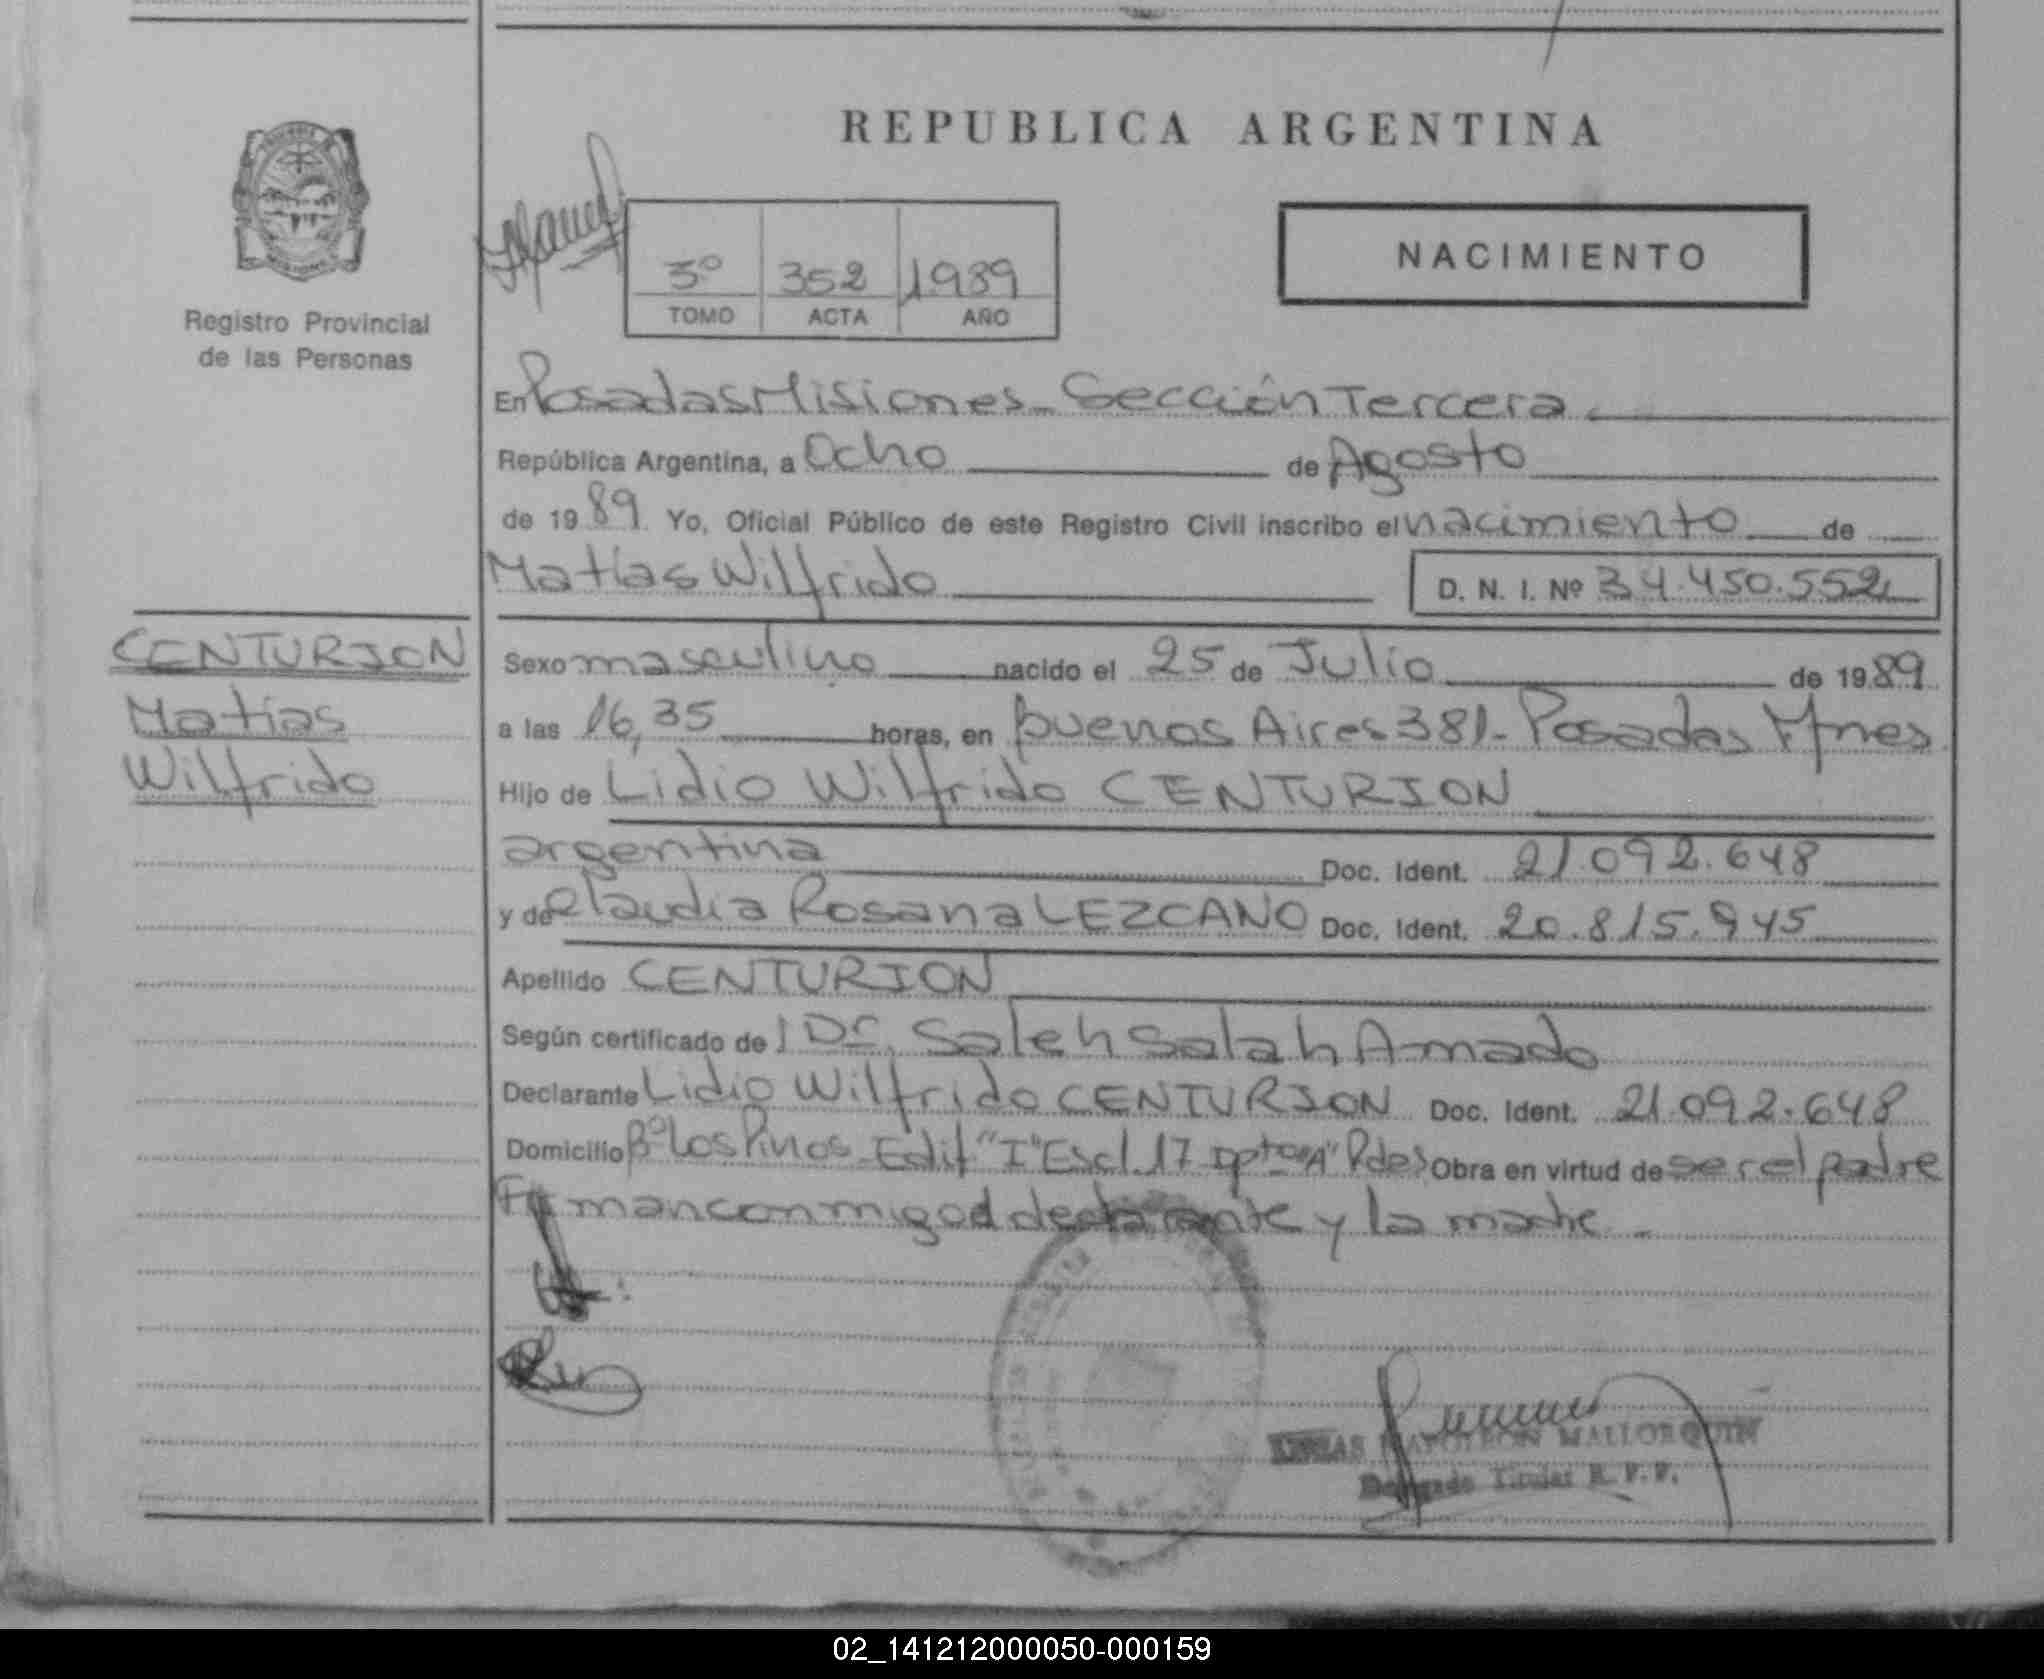 REPUBLICA ARGENTINA
NACIMIENTO
3º 352 1989
TOMO ACTA AÑO
Registro Provincial
de las Personas
En Posadas Misiones - Sección Tercera.
República Argentina, a Ocho de Agosto
de 1989. Yo, Oficial Público de este Registro Civil inscribo el nacimiento de
Matías Wilfrido D. N. I. Nº 34.450.552
CENTURION
Matías
Wilfrido
Sexo masculino nacido el 25 de Julio de 1989
a las 16,35 horas, en buenos Aires 381 - Posadas Mnes
Hijo de Lidio Wilfrido CENTURION
argentina Doc. Ident. 21.092.648
y de Claudia Rosana LEZCANO Doc. Ident. 20.815.945
Apellido CENTURION
Según certificado de l Dr. Saleh Salah Amado
Declarante Lidio Wilfrido CENTURION Doc. Ident. 21.092.648
Domicilio Bº Los Pinos - Edif "I" Escl. 17 Dpto "A" Pdas Obra en virtud de ser el padre
Firman conmigo el declarante y la madre -
NAPOLEON MALLORQUIN
Delegado Titular R. P. P.
02_141212000050-000159